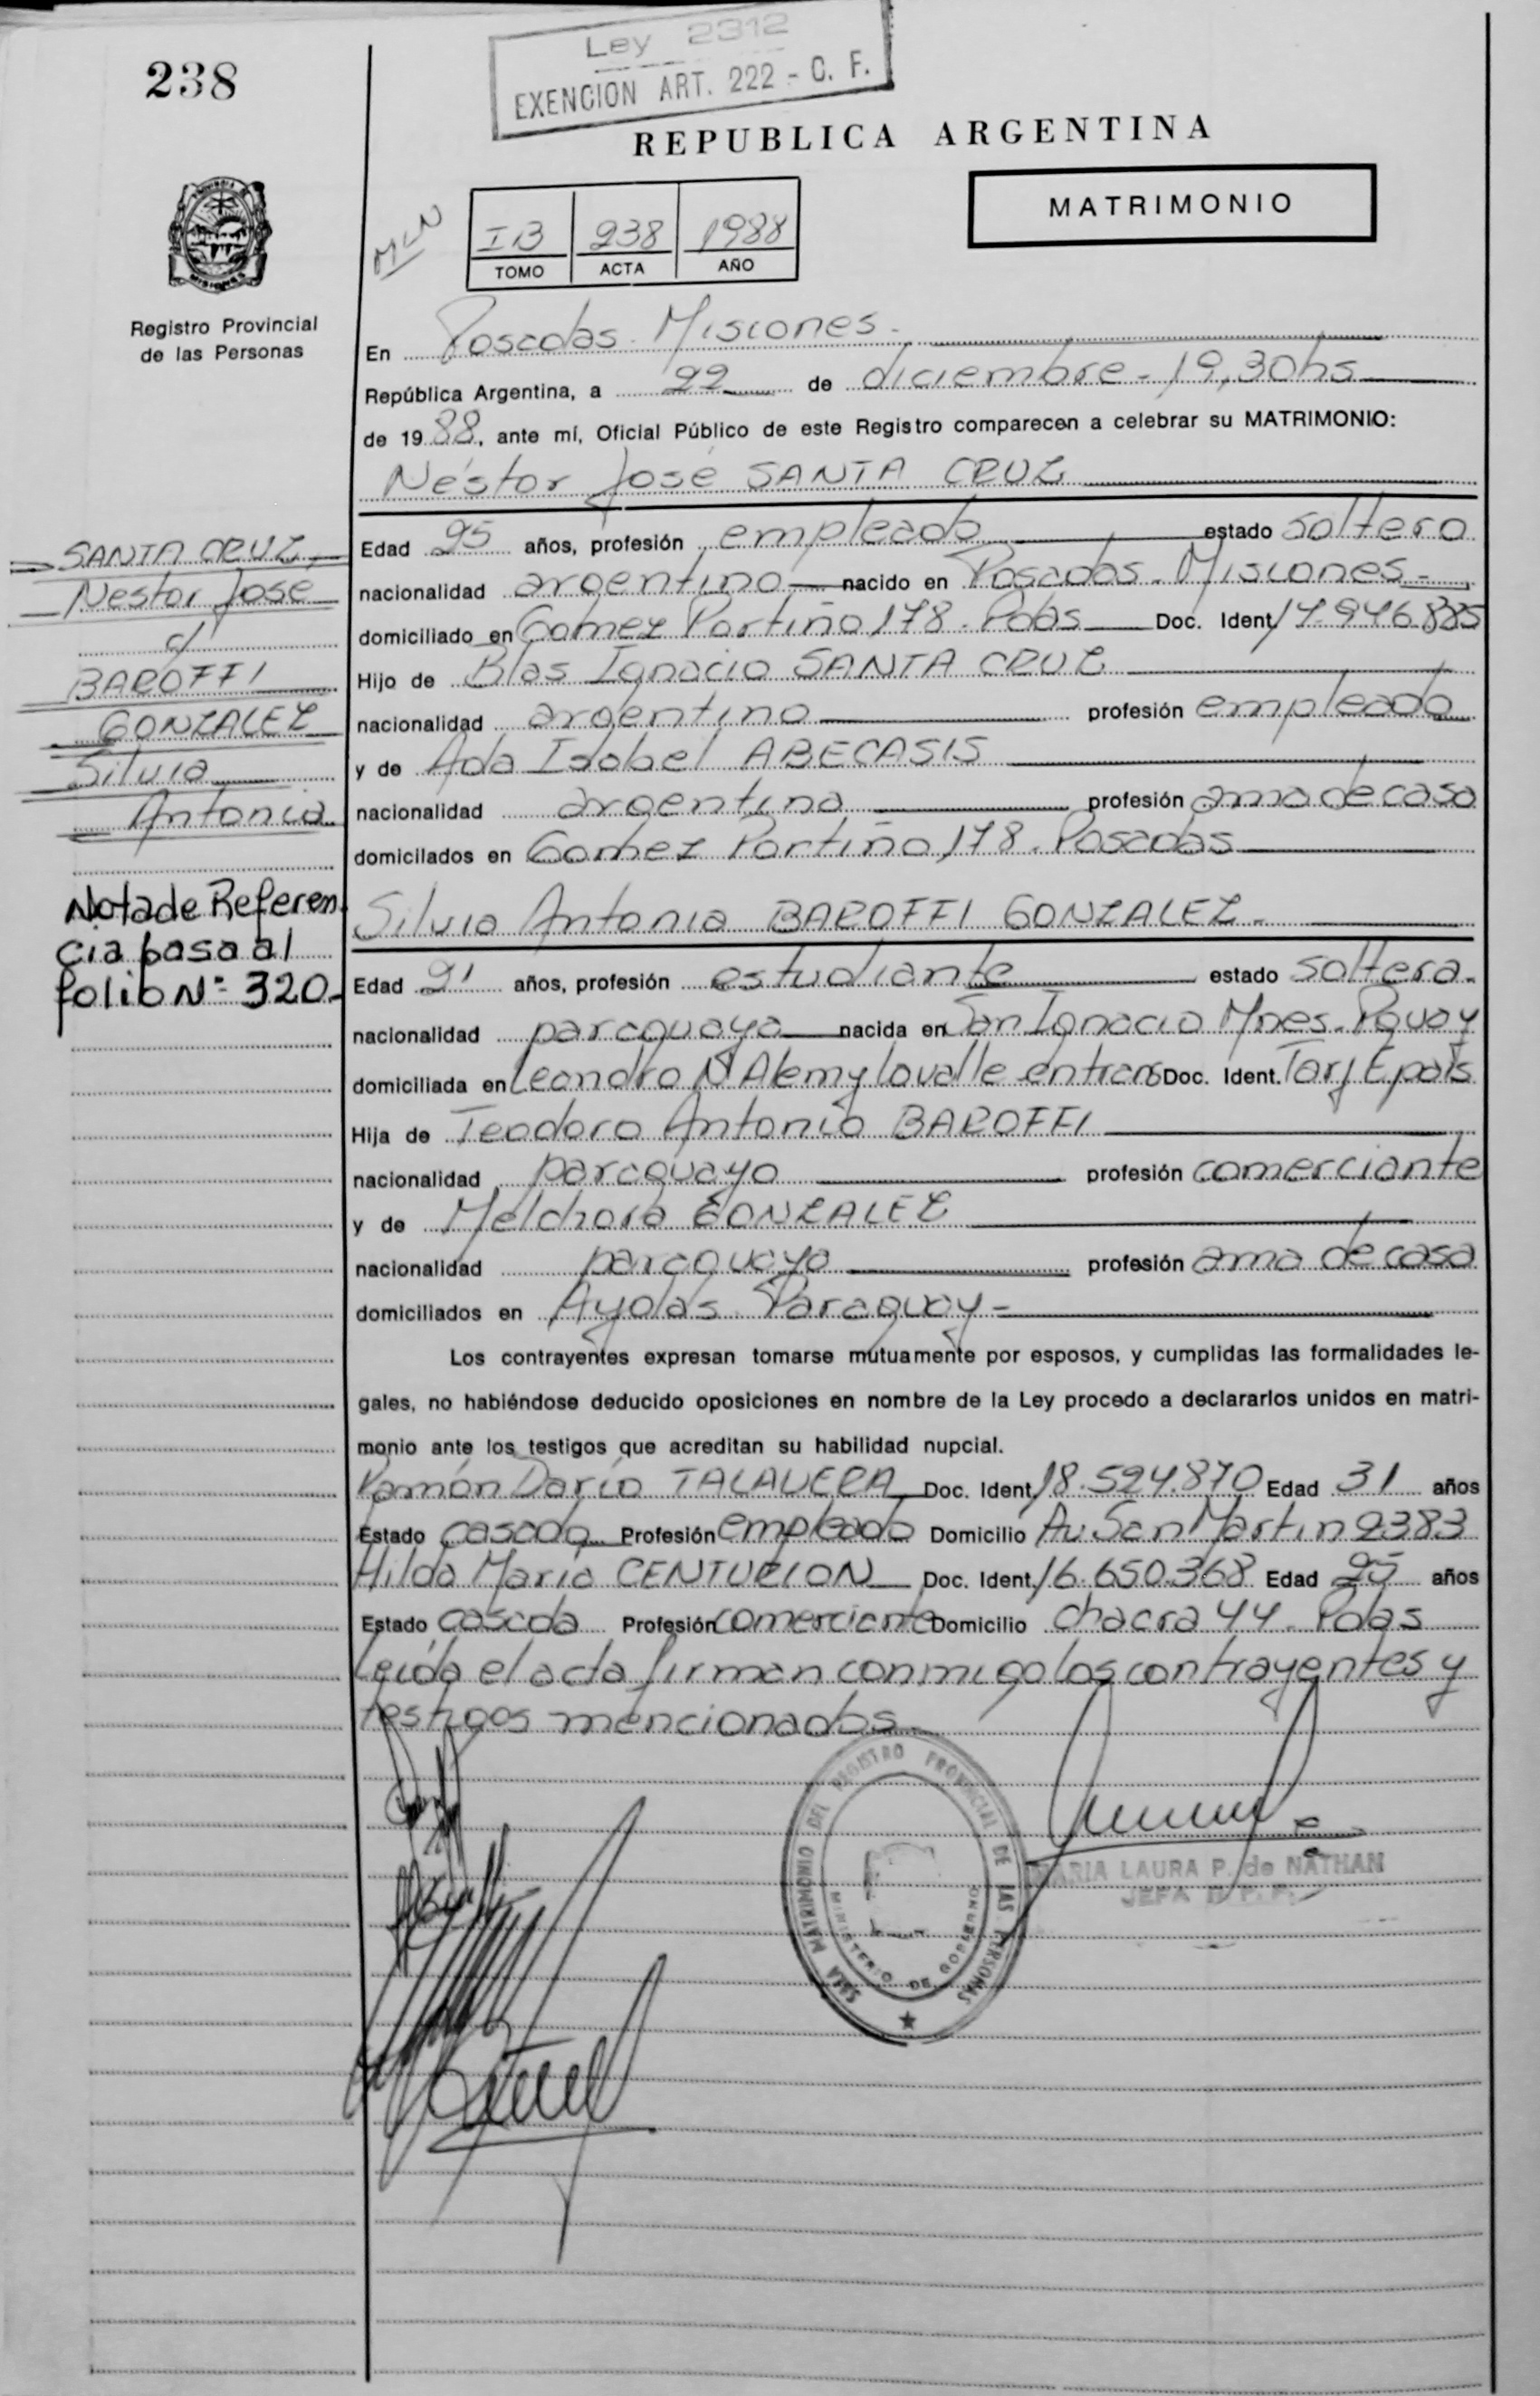 238
Ley 2312
EXENCION ART. 222 - C. F.
REPUBLICA ARGENTINA
MATRIMONIO
IB 238 1988
TOMO ACTA AÑO
PROVINCIA DE
MISIONES
Registro Provincial
de las Personas
En Posadas. Misiones.
República Argentina, a 22 de diciembre - 19,30hs
de 1988, ante mí, Oficial Público de este Registro comparecen a celebrar su MATRIMONIO:
Néstor José SANTA CRUZ
Edad 25 años, profesión empleado estado soltero
nacionalidad argentino nacido en Posadas. Misiones
domiciliado en Gomez Portiño 178. Pdas Doc. Ident. 17.946.885
Hijo de Blas Ignacio SANTA CRUZ
nacionalidad argentino profesión empleado
y de Ada Isabel ABECASIS
nacionalidad argentina profesión ama de casa
domicilados en Gomez Portiño 178. Posadas
SANTA CRUZ,
Nestor Jose
c/
BAROFFI
GONZALEZ
Silvia
Antonia
Nota de Referen
cia pasa al
folio Nº 320.-
Silvia Antonia BAROFFI GONZALEZ.-
Edad 21 años, profesión estudiante estado soltera.
nacionalidad paraguaya nacida en San Ignacio Mnes. Pguay
domiciliada en Leandro N Alem y Lavalle entrans Doc. Ident. Tarj E. país
Hija de Teodoro Antonio BAROFFI
nacionalidad paraguayo profesión comerciante
y de Melchora GONZALEZ
nacionalidad paraguaya profesión ama de casa
domiciliados en Ayolas. Paraguay-
Los contrayentes expresan tomarse mutuamente por esposos, y cumplidas las formalidades le-
gales, no habiéndose deducido oposiciones en nombre de la Ley procedo a declararlos unidos en matri-
monio ante los testigos que acreditan su habilidad nupcial.
Ramón Darío TALAVERA Doc. Ident. 18.524.870 Edad 31 años
Estado casado Profesión empleado Domicilio Av. San Martin 2383
Hilda María CENTURION Doc. Ident. 16.650.368 Edad 25 años
Estado casada Profesión comerciante Domicilio chacra 44. Pdas
Leída el acta firman conmigo los contrayentes y
testigos mencionados
SALA MATRIMONIO DEL REGISTRO PROVINCIAL DE LAS PERSONAS
MINISTERIO DE GOBIERNO
MARIA LAURA P. de NATHAN
JEFA